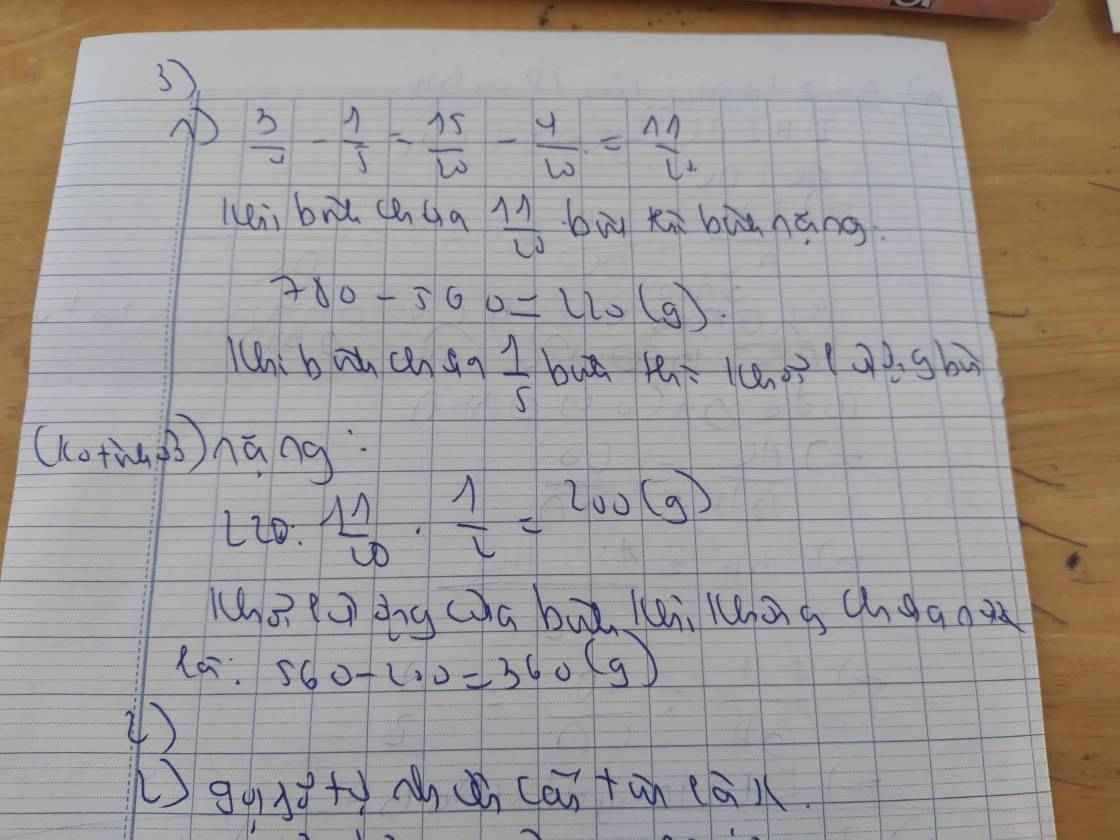 3)
1) 3/4 - 1/5 = 15/20 - 4/20 = 11/20
Khi bình chứa 11/20 bình thì bình nặng:
780 - 560 = 220 (g).
Khi bình chứa 1/5 bình thì khối lượng bình
(ko tính) nặng:
220 : 11/20 . 1/2 = 200 (g)
Khối lượng của bình khi không chứa nước
là: 560 - 200 = 360 (g)
2)
2) gọi số tự nhiên cần tìm là x.